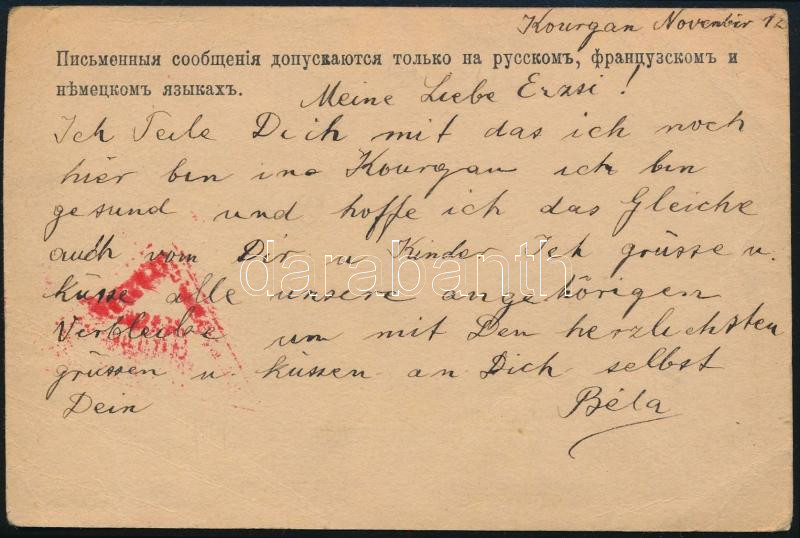 Kourgan November 12
Письменныя сообщенія допускаются только на русскомъ, французскомъ и
нѣмецкомъ языкахъ.
Meine Liebe Erzsi!
Ich Teile Dich mit das ich noch
hier bin ine Kourgan ich bin
gesund und hoffe ich das Gleiche
auch vom Dir u Kinder Ich grüsse u.
küsse alle unsere angehörigen
Verbleibe um mit Den herzlichsten
grüssen u küssen an Dich selbst
Dein Béla
darabanth